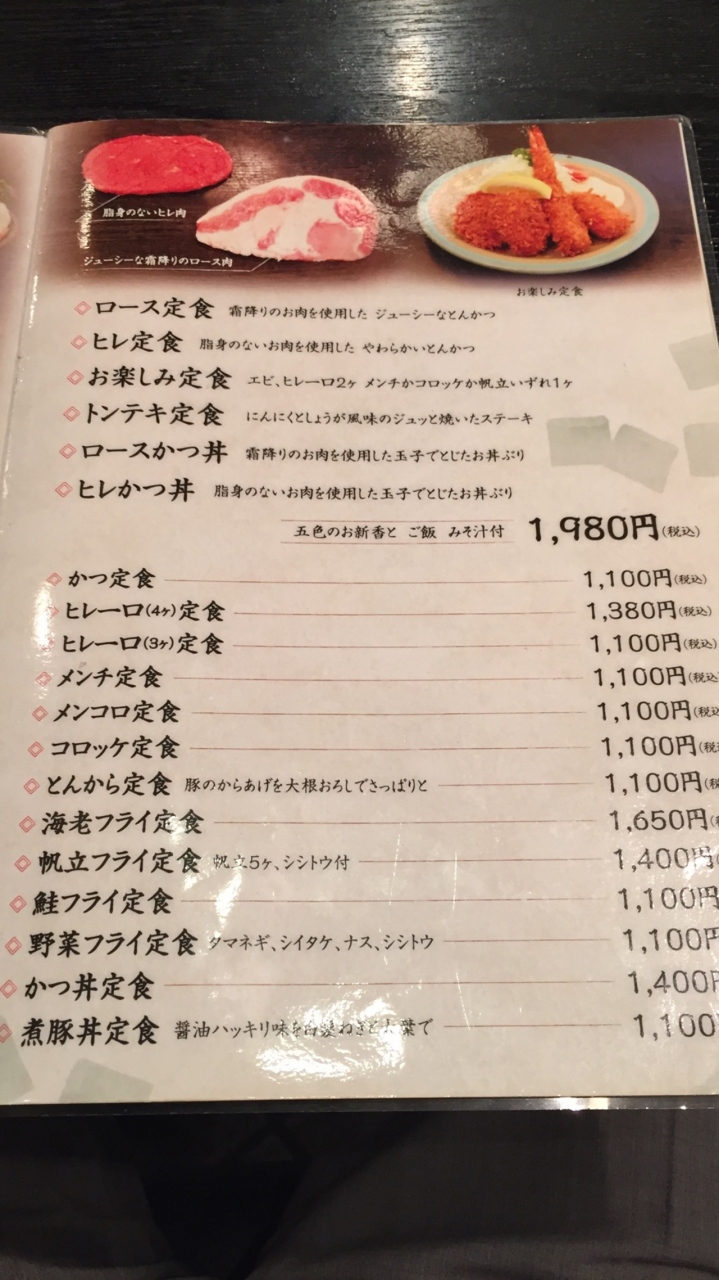 脂身のないヒレ肉
ジューシーな霜降りのロース肉
お楽しみ定食
ロース定食 霜降りのお肉を使用した ジューシーなとんかつ
ヒレ定食 脂身のないお肉を使用した やわらかいとんかつ
お楽しみ定食 エビ、ヒレ一口2ヶ メンチかコロッケか帆立いずれ1ヶ
トンテキ定食 にんにくとしょうが風味のジュッと焼いたステーキ
ロースかつ丼 霜降りのお肉を使用した玉子でとじたお丼ぶり
ヒレかつ丼 脂身のないお肉を使用した玉子でとじたお丼ぶり
五色のお新香と ご飯 みそ汁付 1,980円(税込)
かつ定食 1,100円(税込)
ヒレ一口(4ヶ)定食 1,380円(税込)
ヒレ一口(3ヶ)定食 1,100円(税込)
メンチ定食 1,100円(税込
メンコロ定食 1,100円(税込
コロッケ定食 1,100円(税
とんから定食 豚のからあげを大根おろしでさっぱりと 1,100円(税
海老フライ定食 1,650円(
帆立フライ定食 帆立5ヶ、シシトウ付 1,400円(
鮭フライ定食 1,100円
野菜フライ定食 タマネギ、シイタケ、ナス、シシトウ 1,100円
かつ丼定食 1,400円
煮豚丼定食 醤油ハッキリ味を白髪ねぎと大葉で 1,100